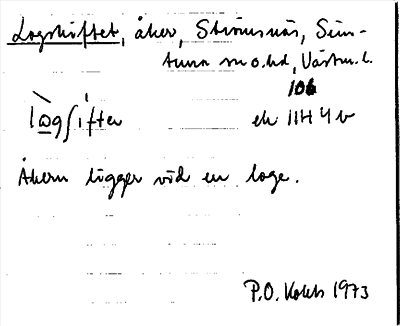 Logskiftet, åker, Strömsnäs, Sim-
tuna sn o. hd, Västm. l.
106
lògſifter ek 11H 4b
Åkern ligger vid en loge.
P.O. 1973